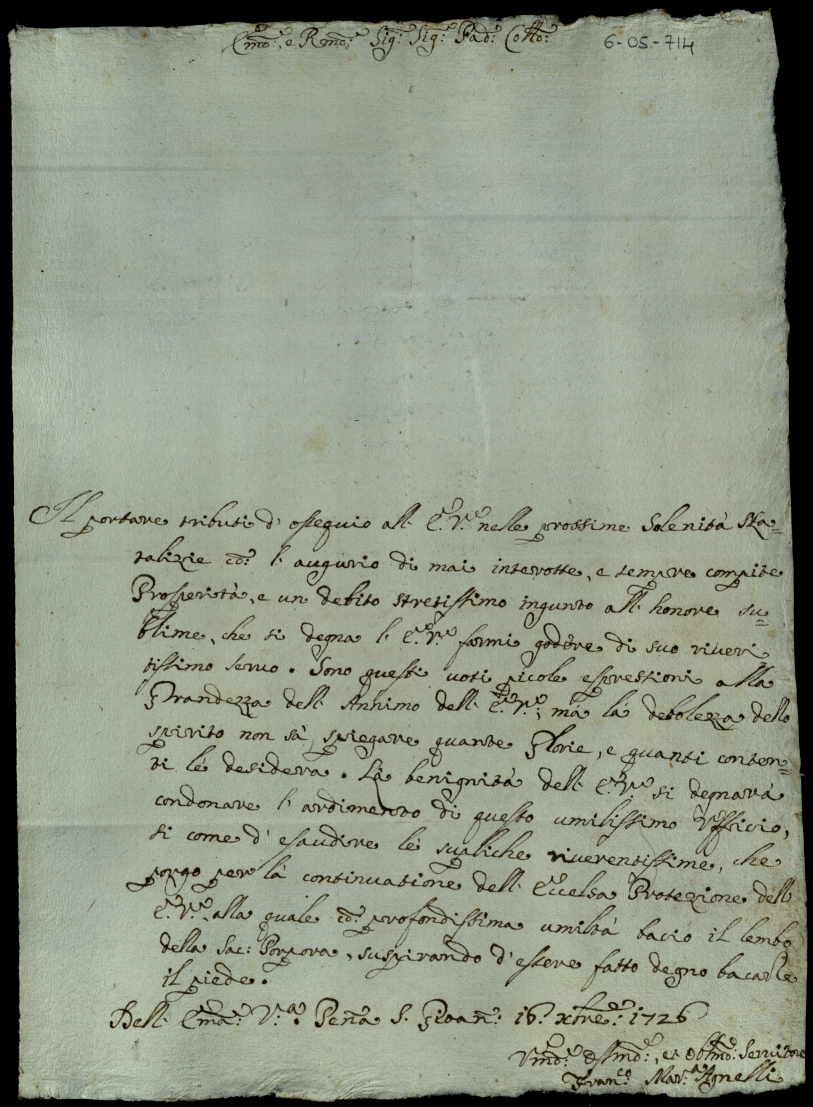 Em̃o: e Rm̃o: Sig: Sig: Pad: Col̃lo:
6-05-714
Il portare tributi d'ossequio all' E.V. nelle prossime Solenità Na=
talizie cõ: l'augurio di mai interotte, e sempre compite
Prosperità, e un debito stretissimo ingunto all' honore su=
blime, che si degna l' E.V. farmi godere di suo riveri
tissimo servo. Sono questi voti picole espressioni alla
Grandezza dell' Annimo dell' E.V.; mà là debolezza dello
spirito non sà spiegare quante Glorie, e quanti conten=
ti le desidera. Là benignità dell' E.V. si degnarà
condonare l'ardimento di questo umilissimo Ufficio,
si come d'esaudire le supliche riverentissime, che
porgo per là continuatione dell' Eccelsa Protezione dell'
E.V. alla quale cõ: profondissima umiltà bacio il lembo
della Sac: Porpora, suspirando d'essere fatto degno bacarle
il piede.
Dell' Em̃a: V.a Penã S. Gioañ: 16. Xbre: 1726
Umo: Dssmo:, et Obmo: Servitore
Franco: Mar.a Agnelli